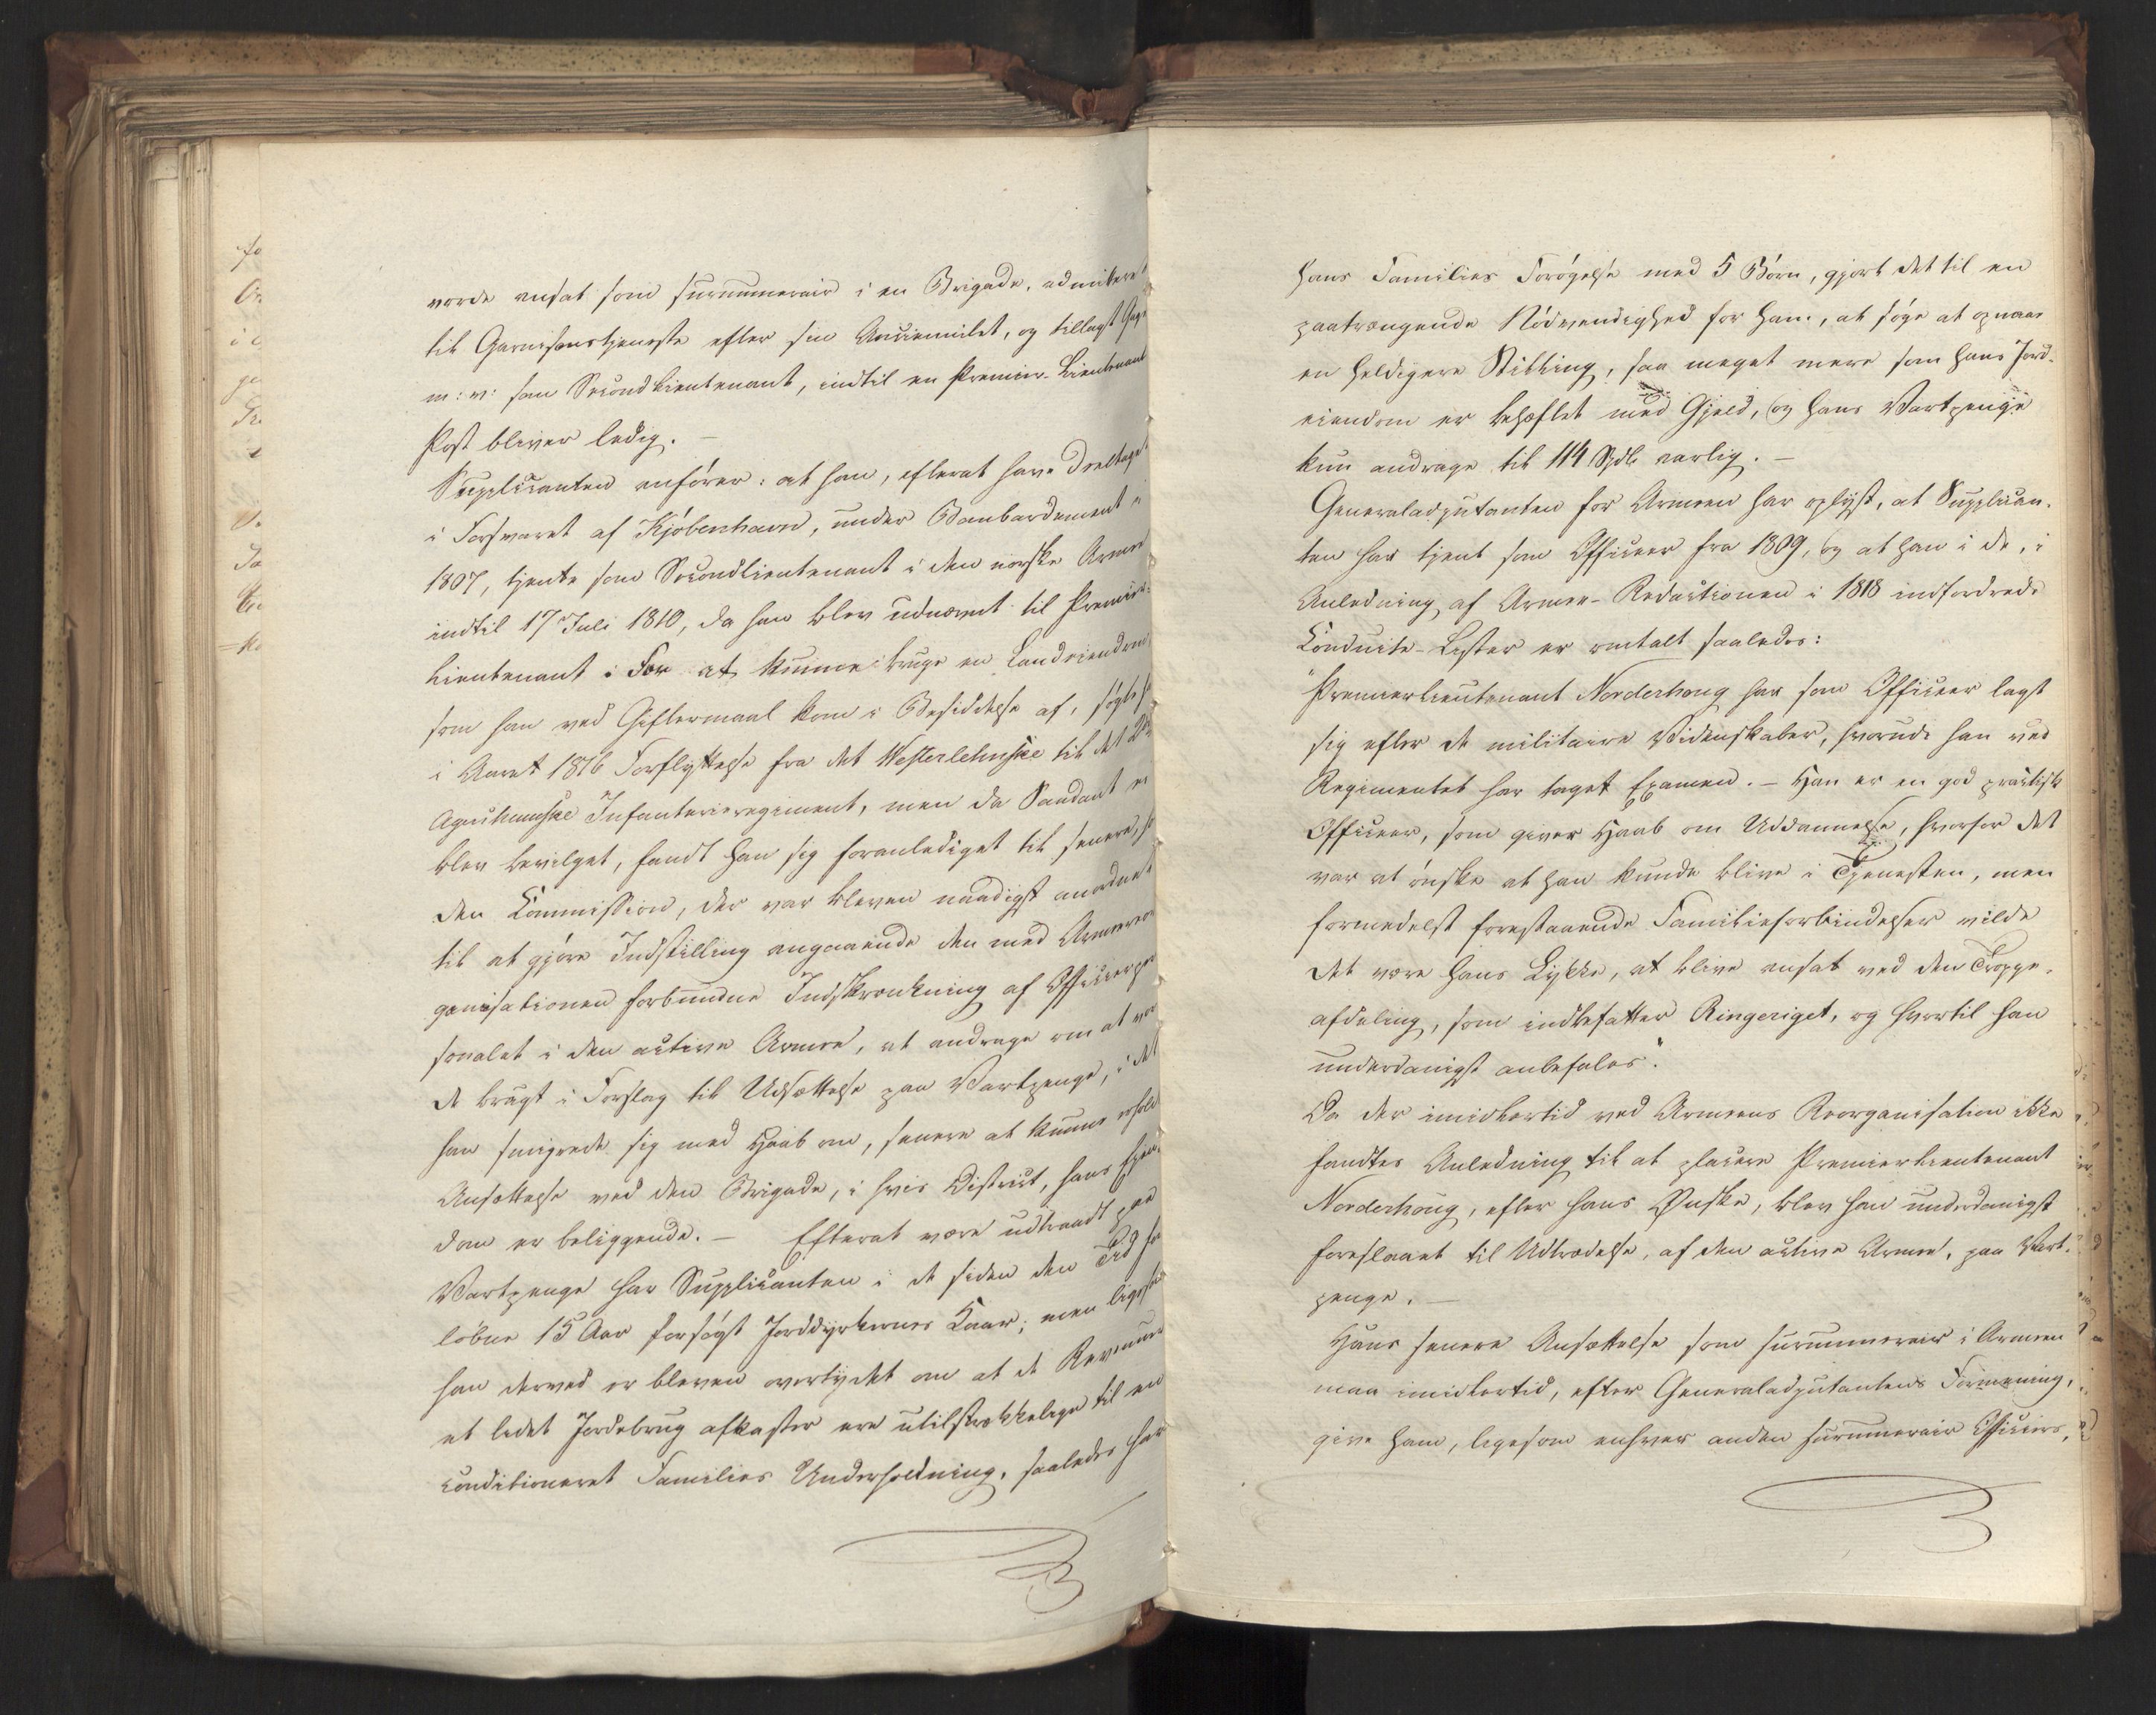 vorde ansat som surnumerair i en Brigade, admittere
til Garnisonstjeneste efter sin Anciennitet, og tillagt Gage
m: v: som Secondlieutenant, indtil en Premier-Lieutenant
Post bliver ledig. —
Supplicanten anfører: at han, efterat have deeltaget
i Forsvaret af Kjøbenhavn, under Bombardement i
1807, tjente som Secondlieutenant i den norske Armee
indtil 17 Juli 1810, da han blev udnævnt til Premier-
Lieutenant. For at kunne bruge en Landeiendom
som han ved Giftermaal kom i Besiddelse af, søgte h
i Aaret 1816 Forflyttelse fra det Westerlehnske til det 2det
Agershuusske Infanterieregiment, men da Saadant ei
blev bevilget, fandt han sig foranlediget til senere, h
den Commission, der var bleven naadigst anordnet
til at gjøre Indstilling angaaende den med Armeeror
ganisationen forbundne Indskrænkning af Officierper
sonalet i den active Armee, at andrage om at vor
de bragt i Forslag til Udsættelse paa Vartpenge, i det
han smigrede sig med Haab om, senere at kunne erhold
Ansættelse ved den Brigade, i hvis District, hans Eien
dom er beliggende. — Efterat være udtraadt paa
Vartpenge har Supplicanten i de siden den Tid for
løbne 15 Aar forsøgt Jorddyrkernes Kaar; men ligesaa
han derved er bleven overtydet om at de Revenuer
et lidet Jordebrug afkaster ere utilstrækkelige til en
conditioneret Families Underholdning, saaledes har
hans Families Forøgelse med 5 Børn, gjort det til en
paatrængende Nødvendighed for ham, at søge at opnaae
en heldigere Stilling, saa meget mere som hans Jord-
eiendom er behæftet med Gjeld, og hans Vartpenge
kun andrage til 114 Spdlr aarlig. —
Generaladjutanten for Armeen har oplyst, at Supplican-
ten har tjent som Officeer fra 1809, og at han i de, i
Anledning af Armee-Reductionen i 1818 indfordrede
Conduite-Lister er omtalt saaledes:
"Premierlieutenant Norderhoug har som Officeer lagt
sig efter de militaire Videnskaber, hvorudi han ved
Regimentet har taget Examen. — Han er en god practisk
Officeer, som giver Haab om Uddannelse, hvorfor det
var at ønske at han kunde blive i Tjenesten, men
formedelst forestaaende Familieforbindelser vilde
det være hans Lykke, at blive ansat ved den Troppe-
afdeling, som indbefatter Ringeriget, og hvortil han
underdanigst anbefales".
Da der imidlertid ved Armeens Reorganisation ikke
fandtes Anledning til at placere Premierlieutenant
Norderhoug, efter hans Ønske, blev han underdanigst
foreslaaet til Udtrædelse, af den active Armee, paa Vart-
penge. —
Hans senere Ansættelse som surnumerair i Armeen
maa imidlertid, efter Generaladjutantens Formening,
give ham, ligesom enhver anden surnumerair Officiers,